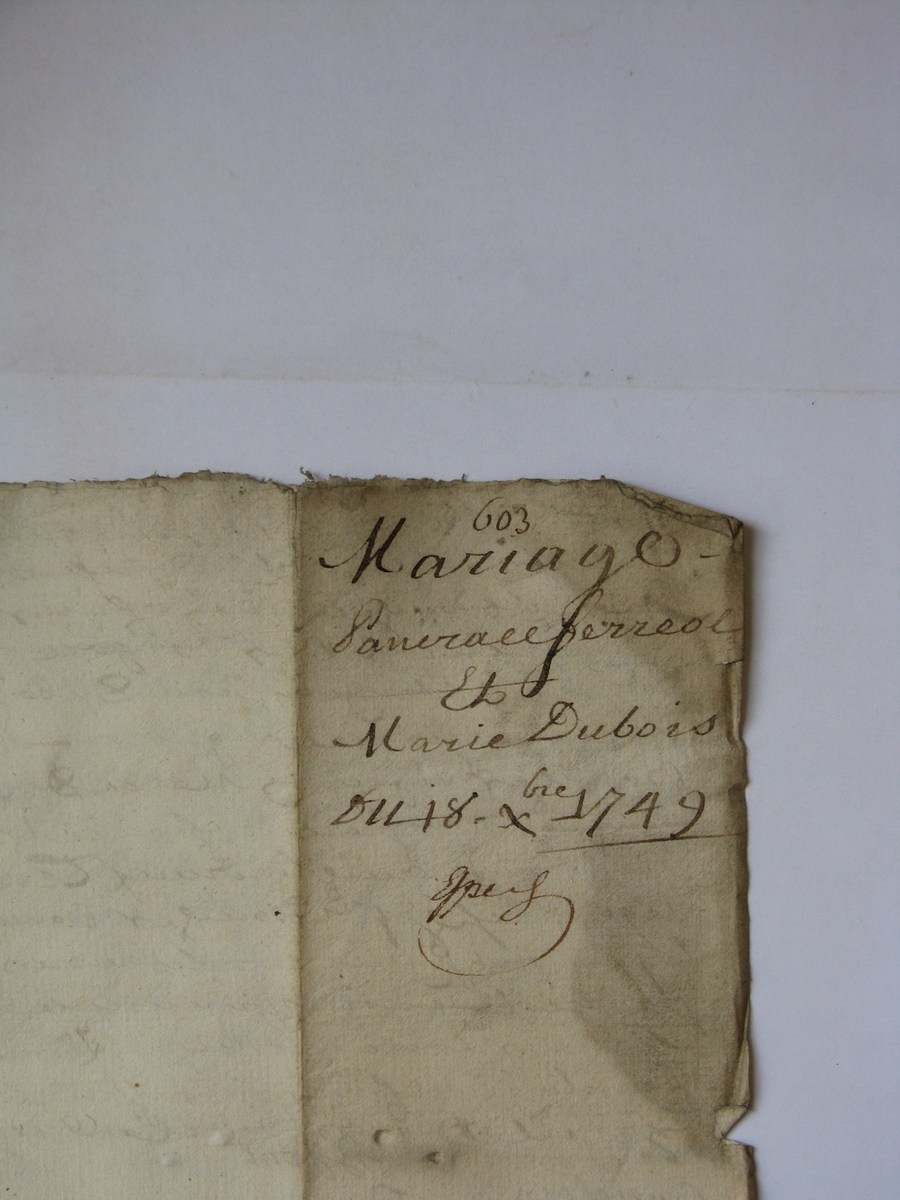 603
Mariage -
Pancrace ferreol
Et
Marie Dubois
Du 18 - Xbre 1749